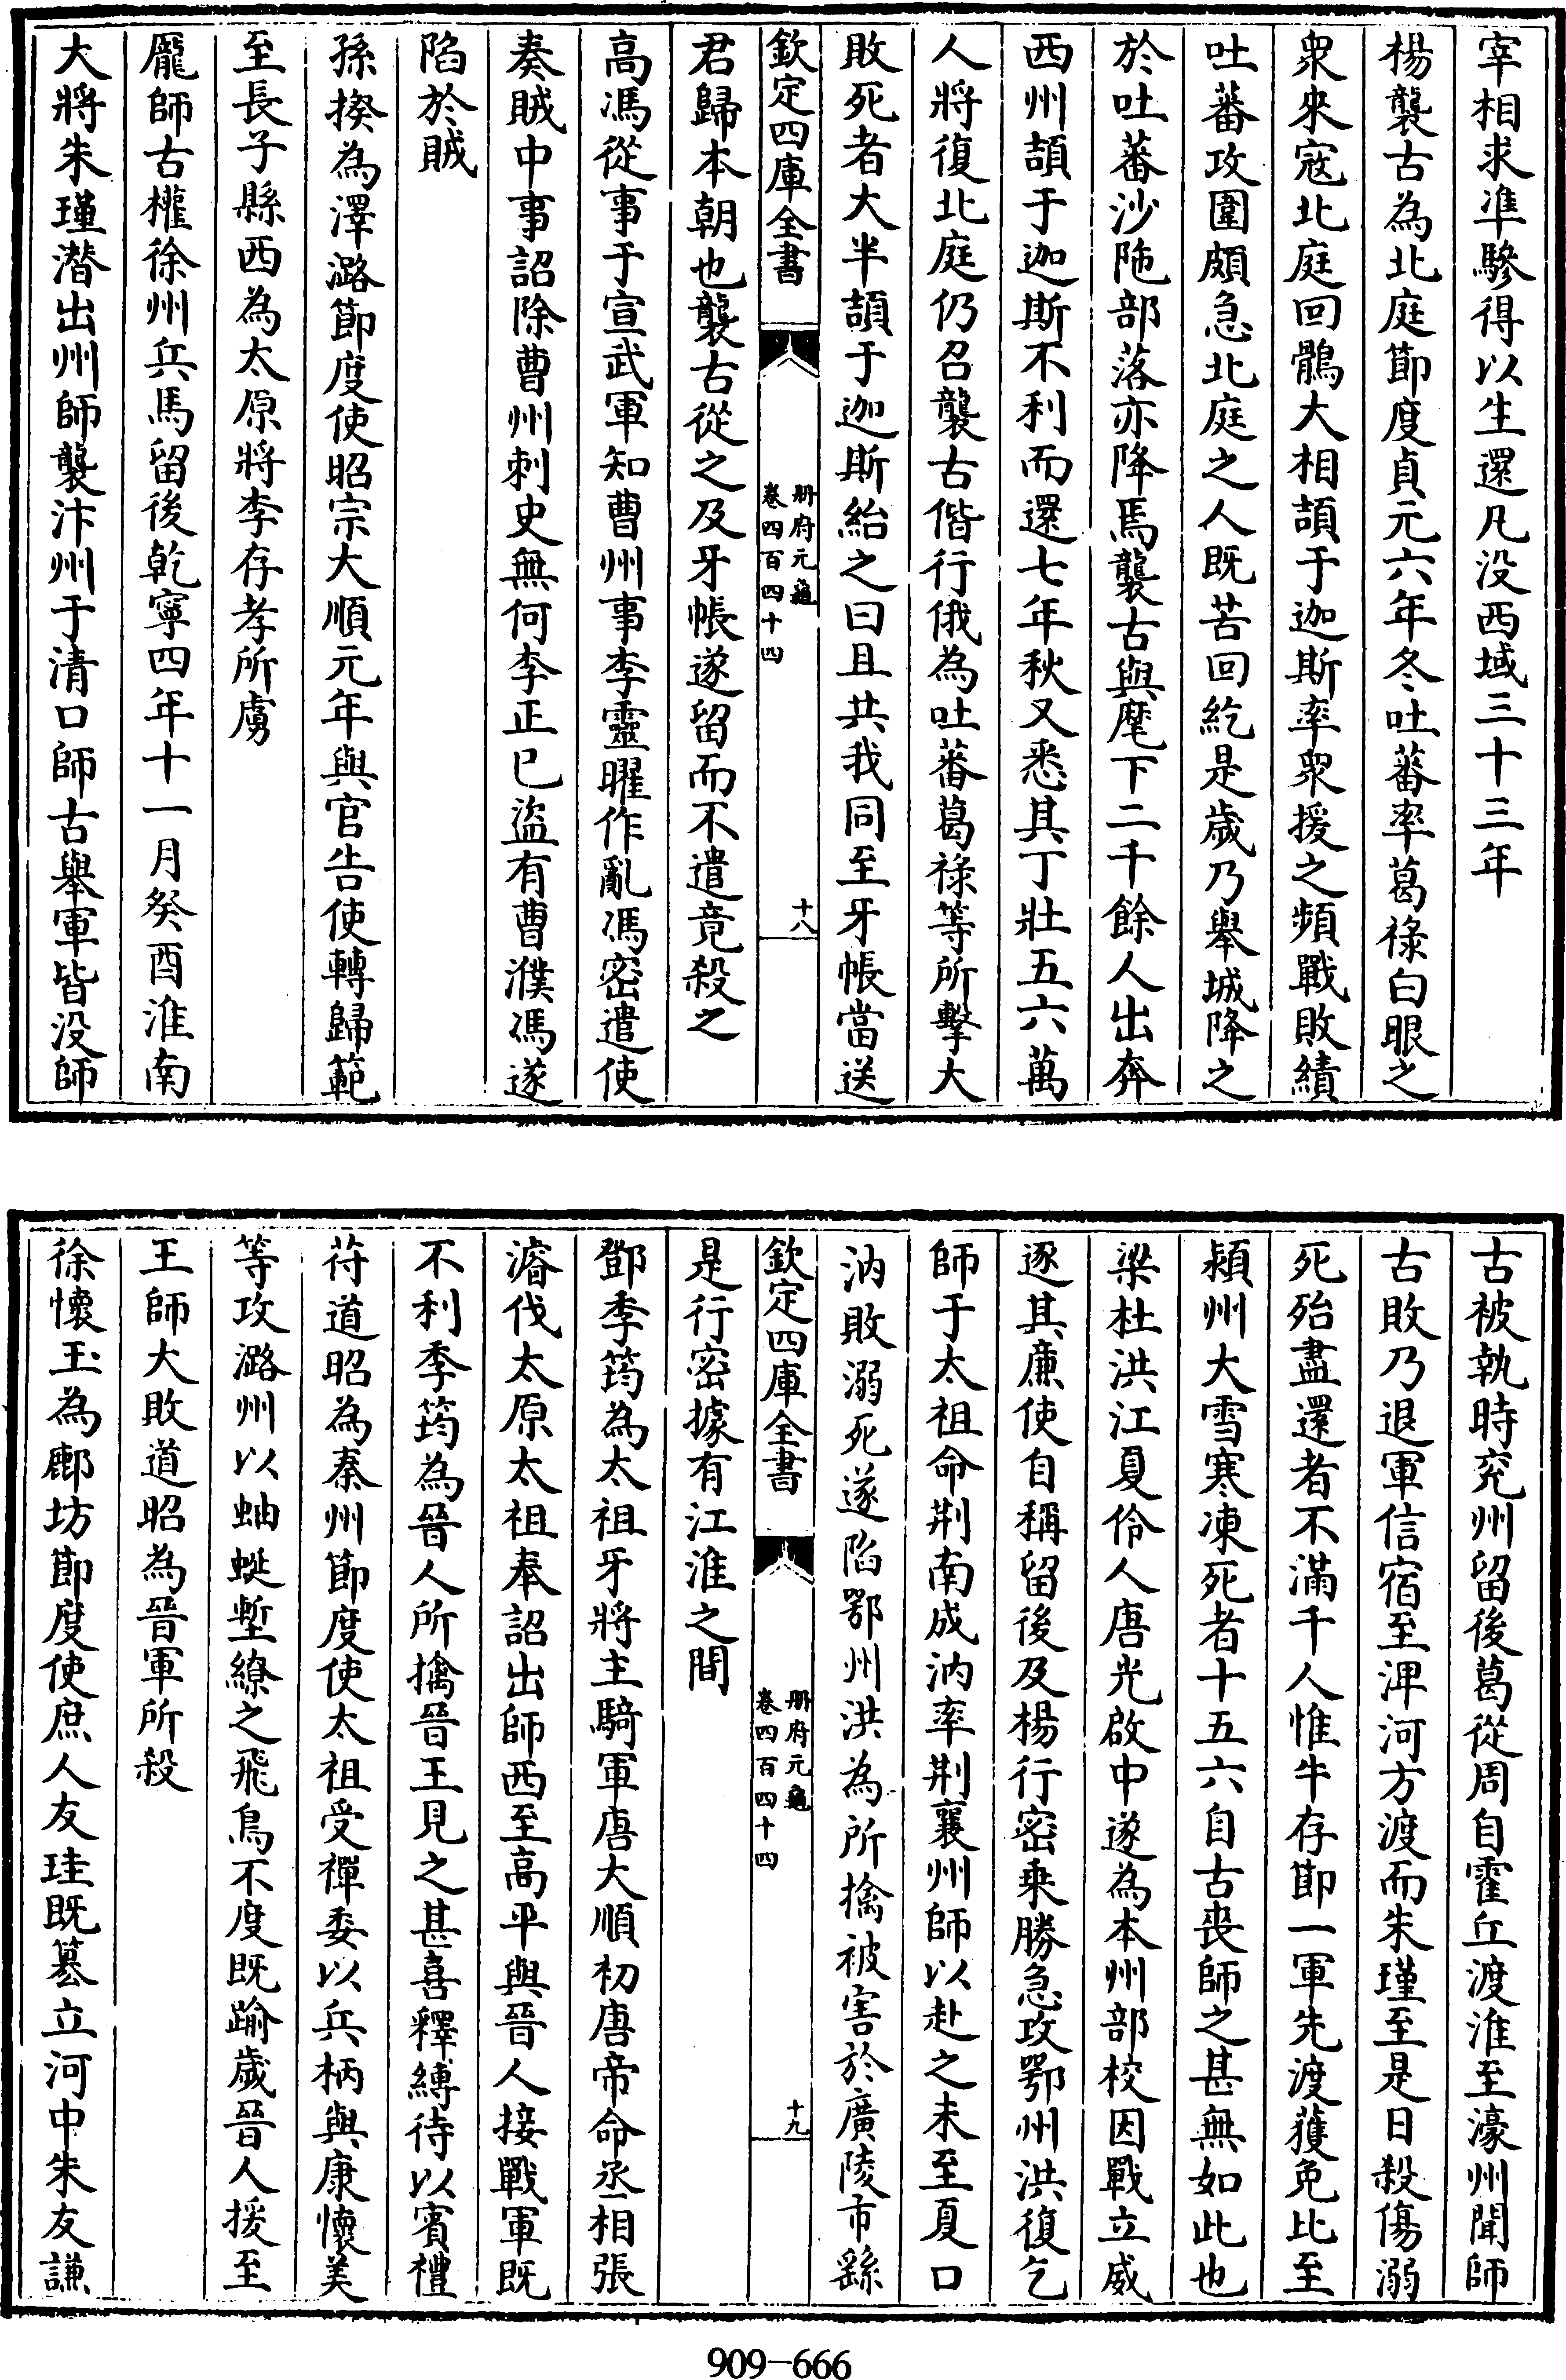 宰相求準驂得以生還凡没西域三十三年
楊襲古為北庭節度貞元六年冬吐蕃率葛祿白眼之
衆來寇北庭回鶻大相頡于迦斯率衆援之頻戰敗績
吐蕃攻圍頗急北庭之人既苦回紇是歲乃舉城降之
於吐蕃沙陁部落亦降焉襲古與麾下二千餘人出奔
西州頡于迦斯不利而還七年秋又悉其丁壯五六萬
人將復北庭仍召襲古偕行俄為吐蕃葛祿等所擊大
敗死者大半頡于迦斯紿之曰且共我同至牙帳當送
欽定四庫全書
册府元龜
卷四百四十四
十八
君歸本朝也襲古從之及牙帳遂留而不遣竟殺之
高馮從事于宣武軍知曹州事李靈曜作亂馮密遣使
奏賊中事詔除曹州刺史無何李正已盜有曹濮馮遂
陷於賊
孫揆為澤潞節度使昭宗大順元年與官告使轉歸範
至長子縣西為太原將李存孝所虜
龐師古權徐州兵馬留後乾寧四年十一月癸酉淮南
大將朱瑾潛出州師襲汴州于清口師古舉軍皆没師
古被執時兖州留後葛從周自霍丘渡淮至濠州聞師
古敗乃退軍信宿至渒河方渡而朱瑾至是日殺傷溺
死殆盡還者不滿千人惟牛存節一軍先渡獲免比至
潁州大雪寒凍死者十五六自古喪師之甚無如此也
梁杜洪江夏伶人唐光啟中遂為本州部校因戰立威
逐其廉使自稱留後及楊行密乗勝急攻鄂州洪復乞
師于太祖命荆南成汭率荆襄州師以赴之未至夏口
汭敗溺死遂陷鄂州洪為所擒被害於廣陵市繇
欽定四庫全書
册府元龜
卷四百四十四
十九
是行密據有江淮之間
鄧季筠為太祖牙將主騎軍唐大順初唐帝命丞相張
濬伐太原太祖奉詔出師西至高平與晉人接戰軍既
不利季筠為晉人所擒晉王見之甚喜釋縛待以賓禮
苻道昭為秦州節度使太祖受禪委以兵柄與康懷美
等攻潞州以蚰蜒塹繚之飛鳥不度既踰歲晉人援至
王師大敗道昭為晉軍所殺
徐懷玉為鄜坊節度使庶人友珪既簒立河中朱友謙
909-666